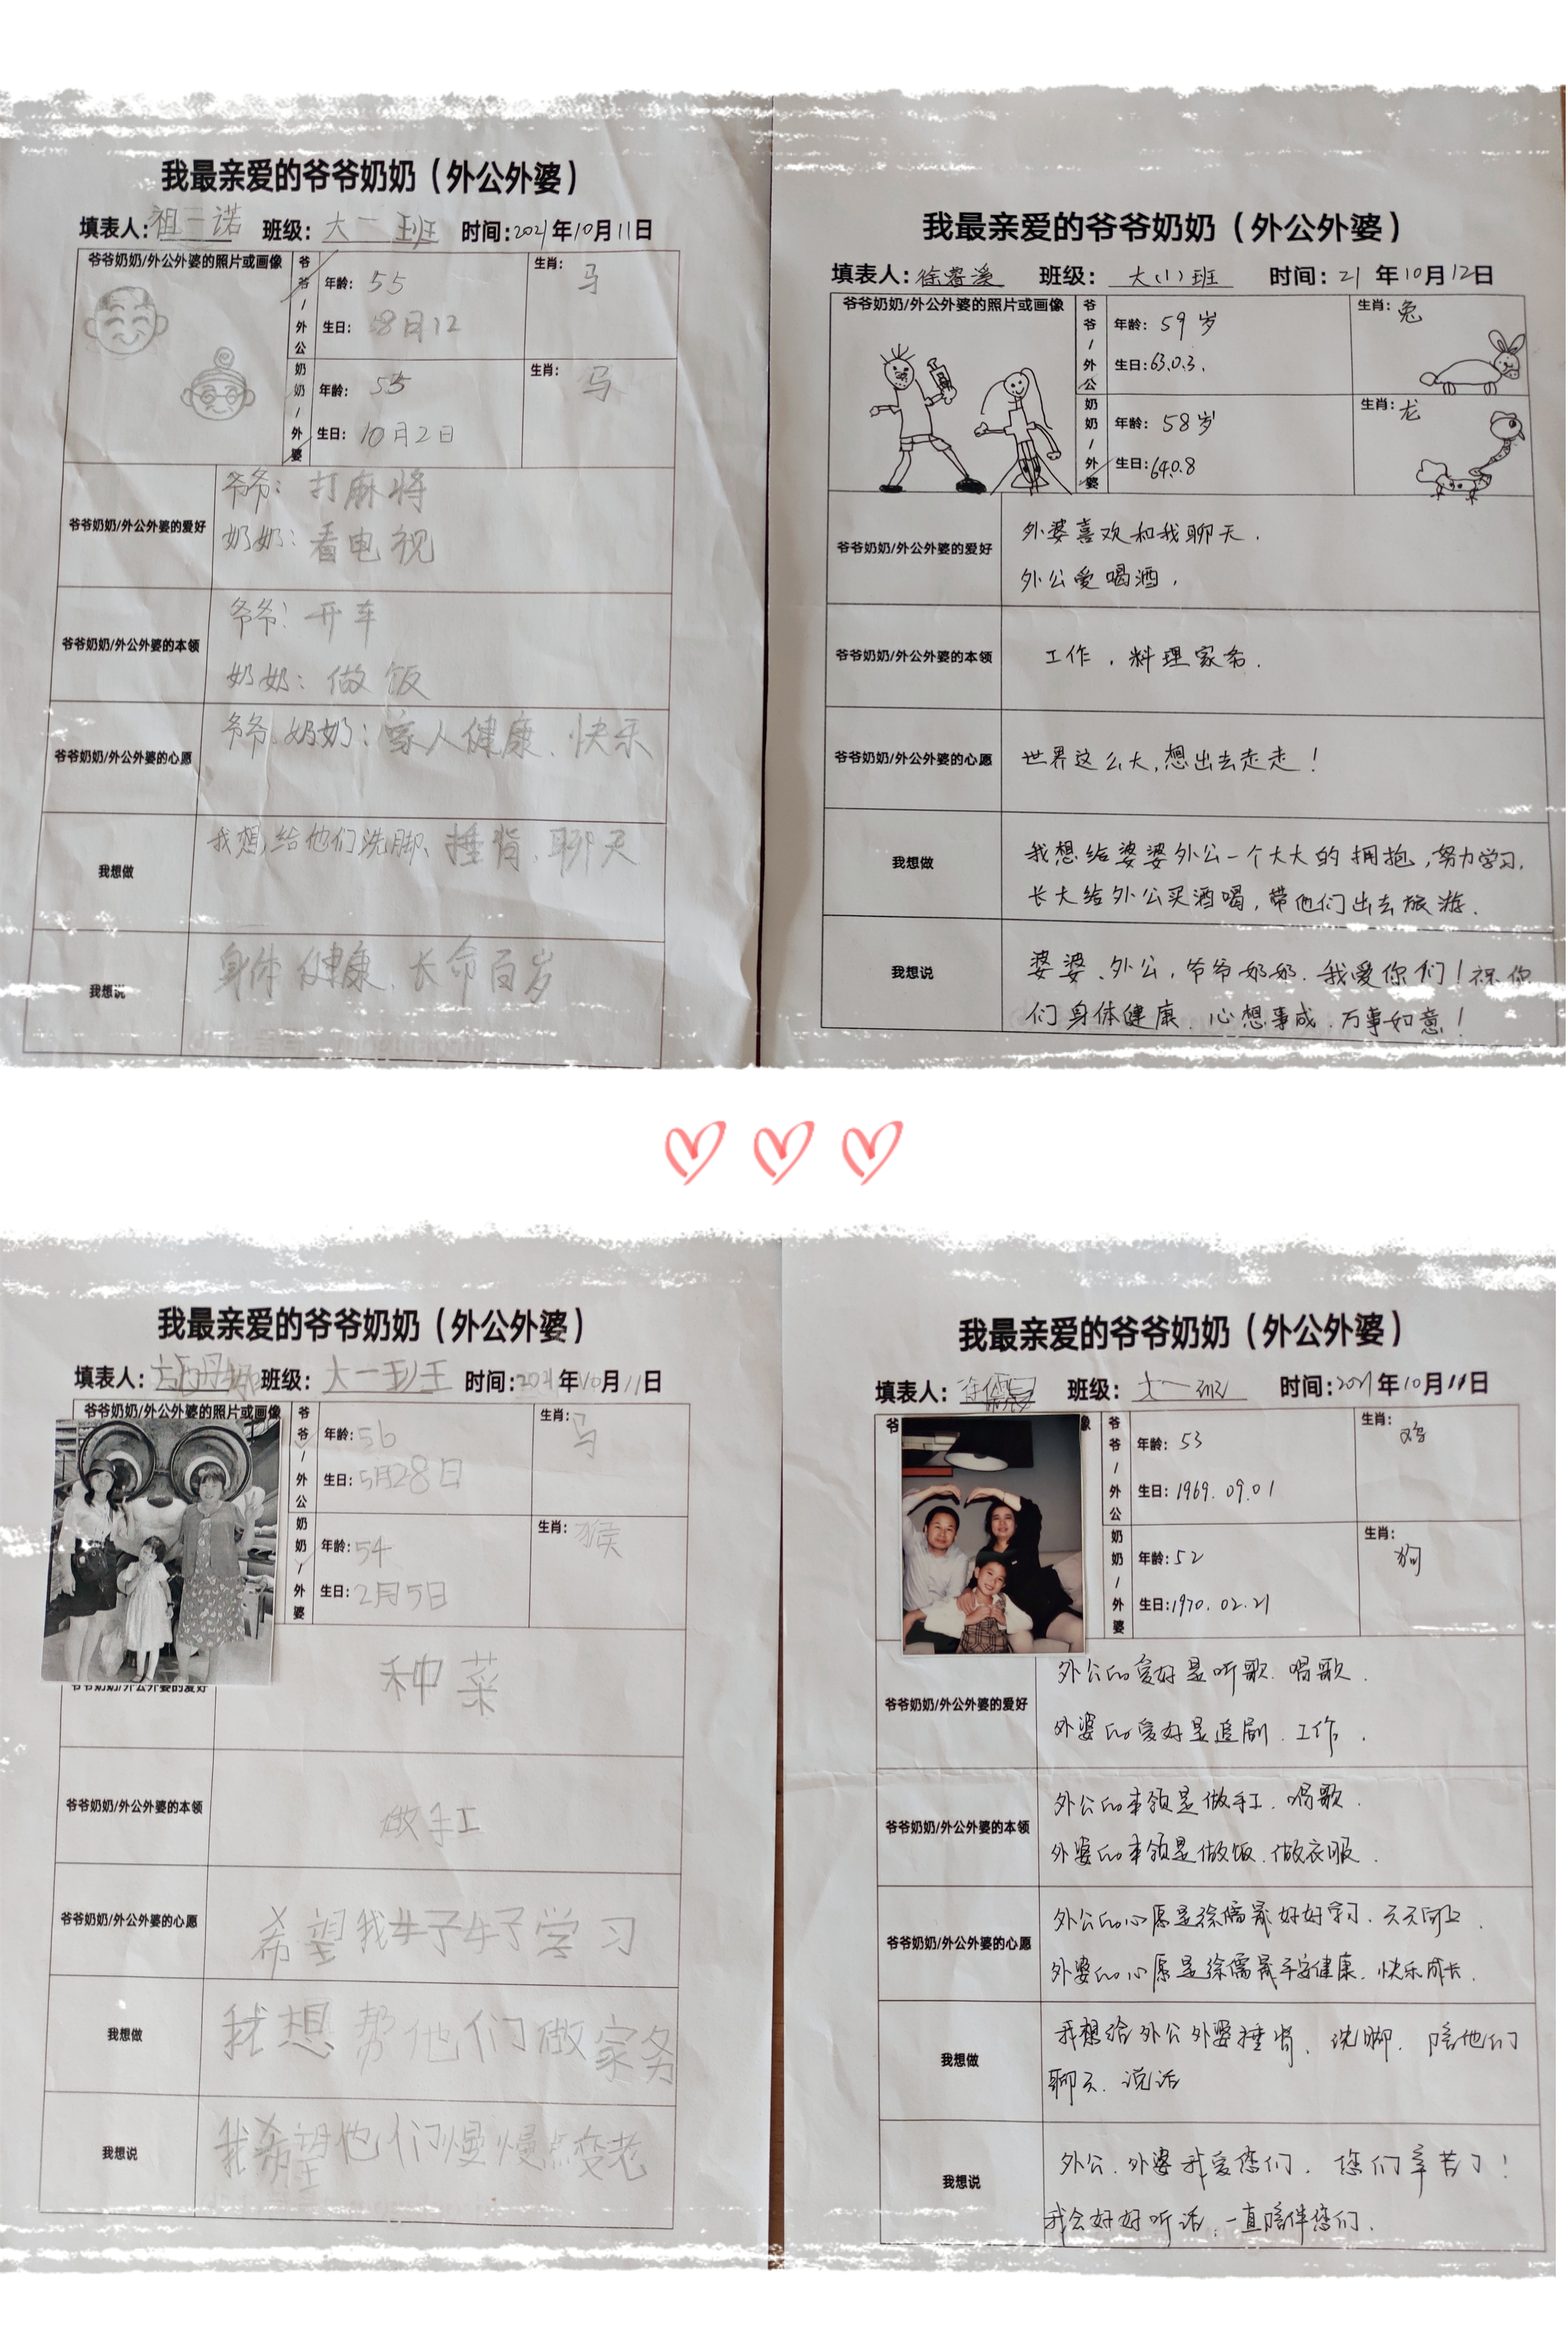 我最亲爱的爷爷奶奶（外公外婆）
填表人：祖一诺 班级：大一班 时间：2021年10月11日
爷爷奶奶/外公外婆的照片或画像
爷爷/外公
年龄：55
生肖：马
生日：8月12
奶奶/外婆
年龄：55
生肖：马
生日：10月2日
爷爷奶奶/外公外婆的爱好
爷爷：打麻将
奶奶：看电视
爷爷奶奶/外公外婆的本领
爷爷：开车
奶奶：做饭
爷爷奶奶/外公外婆的心愿
爷爷、奶奶：家人健康、快乐
我想做
我想给他们洗脚、捶背、聊天
我想说
身体健康、长命百岁
我最亲爱的爷爷奶奶（外公外婆）
填表人：徐 班级：大(1)班 时间：21年10月12日
爷爷奶奶/外公外婆的照片或画像
爷爷/外公
年龄：59岁
生肖：兔
生日：63.0.3.
奶奶/外婆
年龄：58岁
生肖：龙
生日：64.0.8
爷爷奶奶/外公外婆的爱好
外婆喜欢和我聊天.
外公爱喝酒,
爷爷奶奶/外公外婆的本领
工作,料理家务.
爷爷奶奶/外公外婆的心愿
世界这么大,想出去走走!
我想做
我想给婆婆外公一个大大的拥抱,努力学习,
长大给外公买酒喝,带他们出去旅游.
我想说
婆婆、外公,爷爷奶奶.我爱你们!祝你
们身体健康.心想事成.万事如意!
我最亲爱的爷爷奶奶（外公外婆）
填表人： 班级：大一班 时间：2021年10月11日
爷爷奶奶/外公外婆的照片或画像
爷爷/外公
年龄：56
生肖：马
生日：5月28日
奶奶/外婆
年龄：54
生肖：猴
生日：2月5日
爷爷奶奶/外公外婆的爱好
种菜
爷爷奶奶/外公外婆的本领
做手工
爷爷奶奶/外公外婆的心愿
希望我好好学习
我想做
我想帮他们做家务
我想说
我希望他们慢慢点变老
我最亲爱的爷爷奶奶（外公外婆）
填表人：徐儒晟 班级：大一班 时间：2021年10月11日
爷
像
爷爷/外公
年龄：53
生肖：鸡
生日：1969.09.01
奶奶/外婆
年龄：52
生肖：狗
生日：1970.02.21
爷爷奶奶/外公外婆的爱好
外公的爱好是听歌.唱歌.
外婆的爱好是追剧.工作.
爷爷奶奶/外公外婆的本领
外公的本领是做手工.唱歌.
外婆的本领是做饭.做衣服.
爷爷奶奶/外公外婆的心愿
外公的心愿是徐儒晟好好学习.天天向上.
外婆的心愿是徐儒晟平安健康.快乐成长.
我想做
我想给外公外婆捶背、洗脚.陪他们
聊天.说话
我想说
外公.外婆我爱您们.您们辛苦了!
我会好好听话,一直陪伴您们.